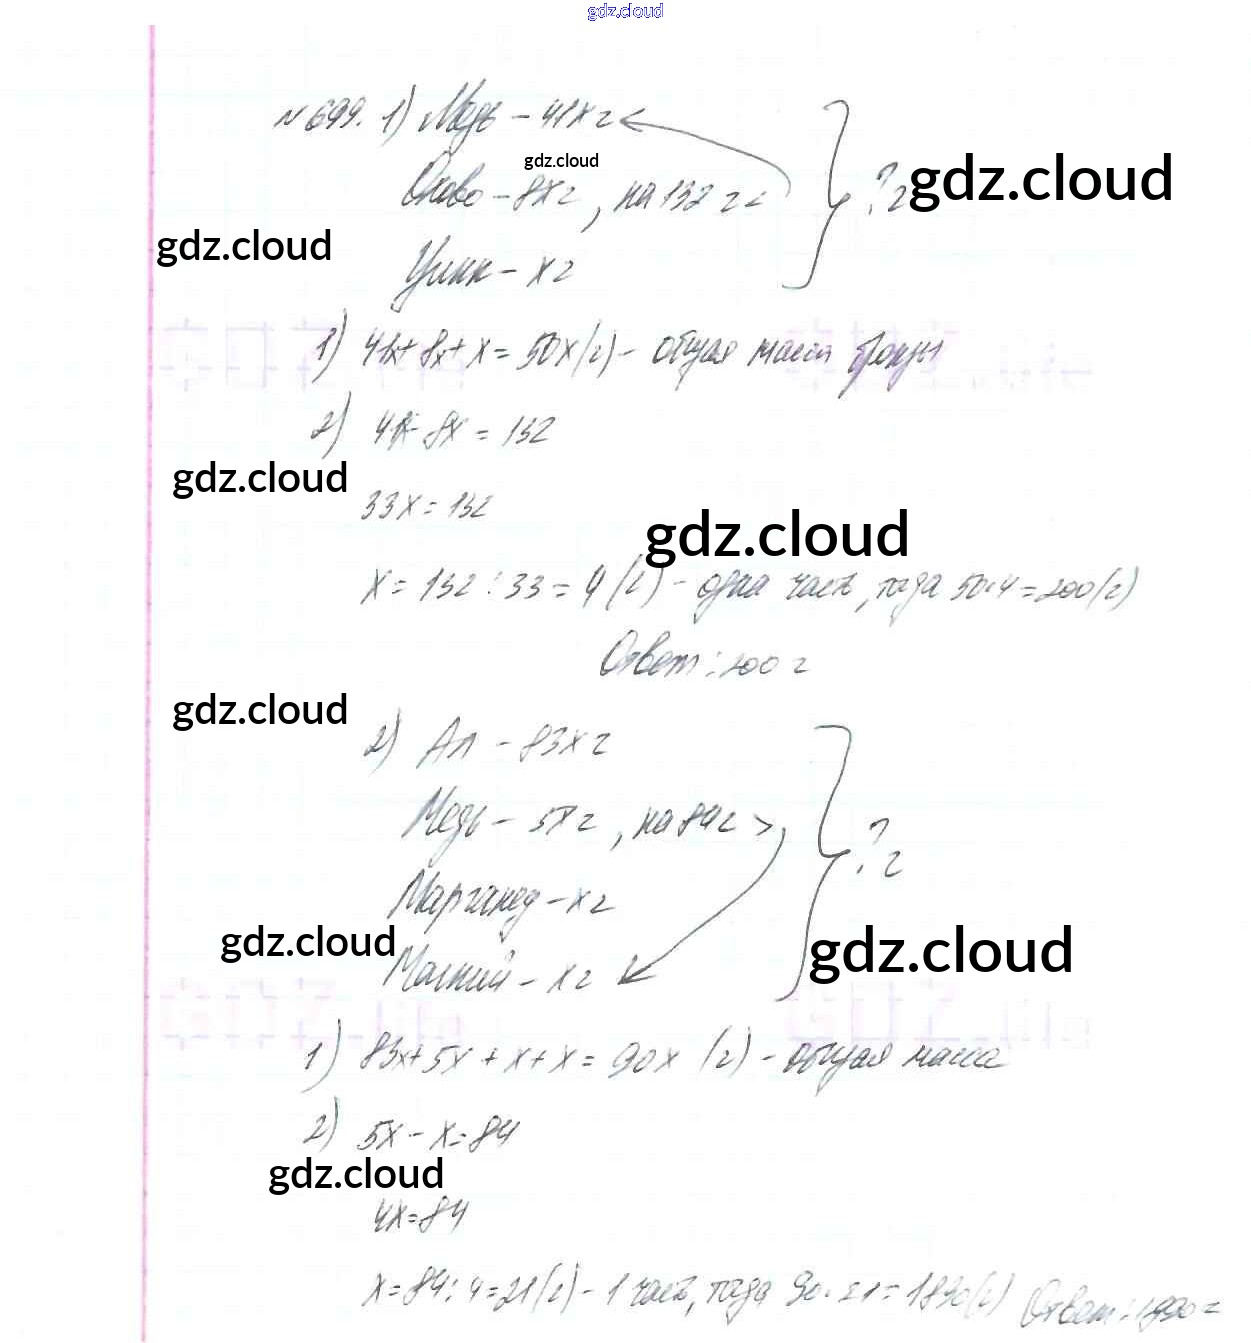 gdz.cloud
№ 699. 1) Медь – 41х г
gdz.cloud
Олово – 8х г, на 132 г < ? г
gdz.cloud
gdz.cloud
Цинк – х г
1) 41х + 8х + х = 50х (г) – общая масса бронзы
2) 41х – 8х = 132
gdz.cloud
33х = 132
gdz.cloud
х = 132 : 33 = 4 (г) – одна часть, тогда 50·4 = 200 (г)
Ответ: 200 г
gdz.cloud
2) Ал – 83х г
Медь – 5х г, на 84 г > ? г
Марганец – х г
gdz.cloud
gdz.cloud
Магний – х г
1) 83х + 5х + х + х = 90х (г) – общая масса
2) 5х – х = 84
gdz.cloud
4х = 84
х = 84 : 4 = 21 (г) – 1 часть, тогда 90·21 = 1890 (г) Ответ: 1890 г